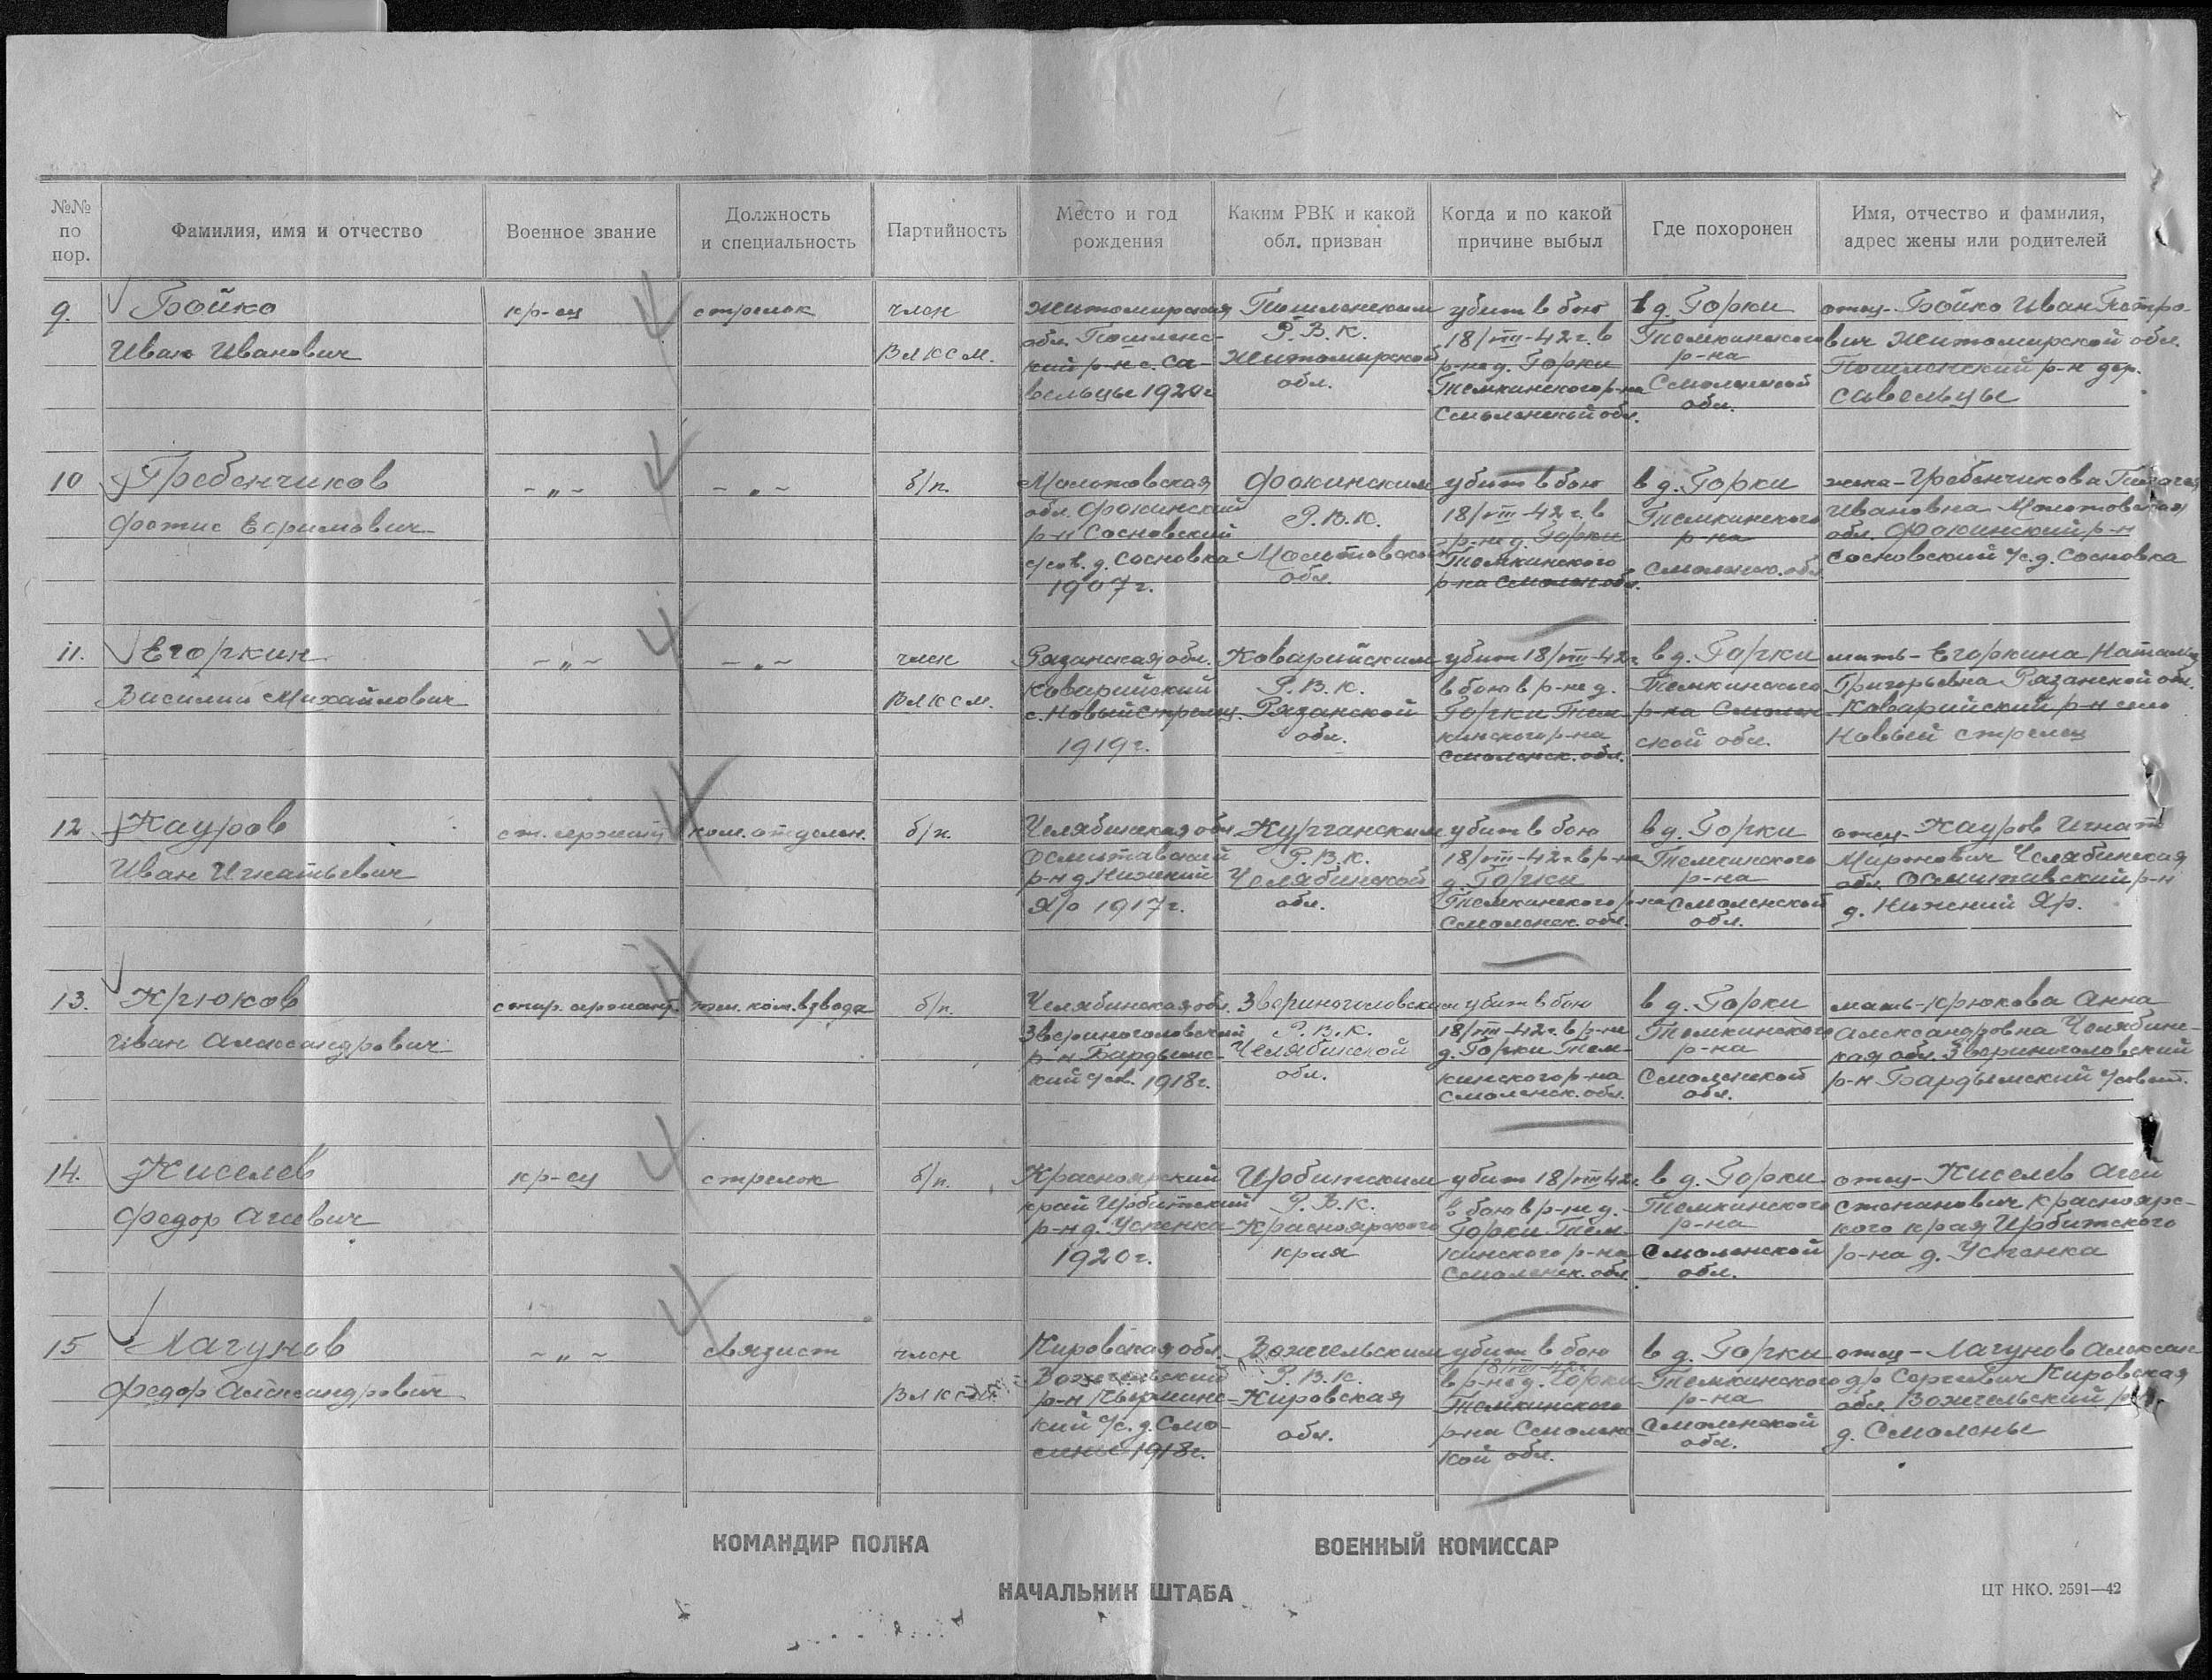 №№ по пор.
Фамилия, имя и отчество
Военное звание
Должность и специальность
Партийность
Место и год рождения
Каким РВК и какой обл. призван
Когда и по какой причине выбыл
Где похоронен
Имя, отчество и фамилия, адрес жены или родителей
9.
Бойко
Иван Иванович
кр-ец
стрелок
член
ВЛКСМ.
Житомирская
обл.
кий р-н с. Са-
вельцы 1920г
Р.В.К.
Житомирской
обл.
убит в бою
18/VIII-42 г. в
р-не д. Горки
Темкинского р-на
Смоленской обл.
в д. Горки
Темкинского
р-на
Смоленской
обл.
отец-Бойко Иван Петро-
вич Житомирской обл.
р-н дер.
Савельцы
10
Гребенчиков
Фотис Ефимович
-„-
-„-
б/п.
Молотовская
обл. Фокинский
р-н Сосновский
с/сов. д. Сосновка
1907 г.
Фокинским
Р.В.К.
Молотовской
обл.
убит в бою
18/VIII-42 г. в
р-не д. Горки
Темкинского
р-на Смолен. обл.
в д. Горки
Темкинского
р-на
Смоленск. обл
жена-Гребенчикова
Ивановна Молотовская
обл. Фокинский р-н
Сосновский с/с. д. Сосновка
11.
Егоркин
Василий Михайлович
-„-
-„-
член
ВЛКСМ.
Рязанская обл.
Каверинский
с. Новый Стрелец.
1919г.
Каверинским
Р.В.К.
Рязанской
обл.
убит 18/VIII-42г
в бою в р-не д.
Горки Тем-
кинского р-на
Смоленск. обл.
в д. Горки
Темкинского
р-на Смолен-
ской обл.
мать-Егоркина Наталья
Григорьевна Рязанской обл.
Каверинский р-н село
Новый Стрелец
12.
Кауров
Иван Игнатьевич
ст. сержант
ком. отделен.
б/п.
Челябинская обл
р-н д. Нижний
Яр 1917г.
Курганским
Р.В.К.
Челябинской
обл.
убит в бою
18/VIII-42г. в р-не
д. Горки
Темкинского р-на
Смоленск. обл.
в д. Горки
Темкинского
р-на
Смоленской
обл.
отец-Кауров Игнат
Миронович Челябинская
обл. р-н
д. Нижний Яр.
13.
Крюков
Иван Александрович
стар. сержант.
пом. ком. взвода
б/п.
Челябинская обл.
Звериноголовский
р-н Бардымс-
кий с/сов. 1918г.
Звериноголовским
Р.В.К.
Челябинской
обл.
убит в бою
18/VIII-42г. в р-не
д. Горки Тем-
кинского р-на
Смоленск. обл.
в д. Горки
Темкинского
р-на
Смоленской
обл.
мать-Крюкова Анна
Александровна Челябинс-
кая обл. Звериноголовский
р-н Бардымский с/совет.
14.
Киселев
Федор Агеевич
кр-ец
стрелок
б/п.
Красноярский
край Ирбитский
р-н д. Успенка
1920г.
Ирбитским
Р.В.К.
Красноярского
края
убит 18/VIII 42г.
в бою в р-не д.
Горки Тем-
кинского р-на
Смоленск. обл.
в д. Горки
Темкинского
р-на
Смоленской
обл.
отец-Киселев Агей
Степанович Красноярс-
кого края Ирбитского
р-на д. Успенка
15
Лагунов
Федор Александрович
-„-
связист
член
ВЛКСМ
Кировская обл.
Вожгальский
р-н
кий с/с. д. Смо-
1918г.
Вожгальским
Р.В.К.
Кировская
обл.
убит в бою
18/VIII-42г.
в р-не д. Горки
Темкинского
р-на Смоленс-
кой обл.
в д. Горки
Темкинского
р-на
Смоленской
обл.
отец-Лагунов Алексан-
др Сергеевич Кировская
обл. Вожгальский р-н
д. Смолены
КОМАНДИР ПОЛКА
ВОЕННЫЙ КОМИССАР
НАЧАЛЬНИК ШТАБА
ЦТ НКО. 2591—42